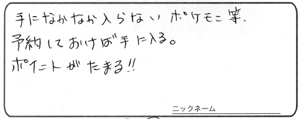 手になかなか入らない ポケモン筆.
予約しておけば手に入る。
ポイントがたまる!!
ニックネーム